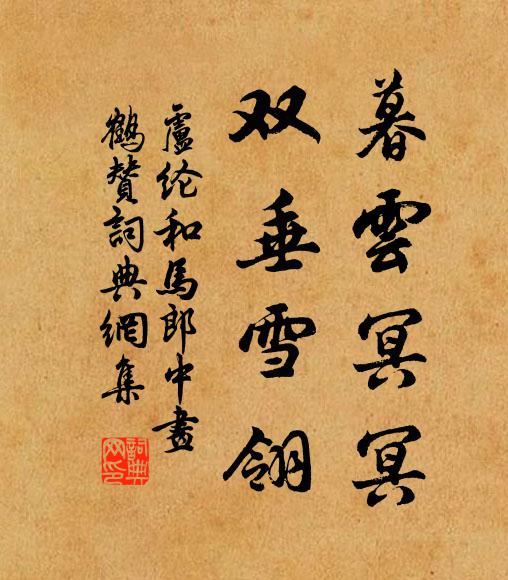 暮雲冥冥
双垂雪翎
盧纶和馬郎中畫
鶴賛詞典網集
詞典网印